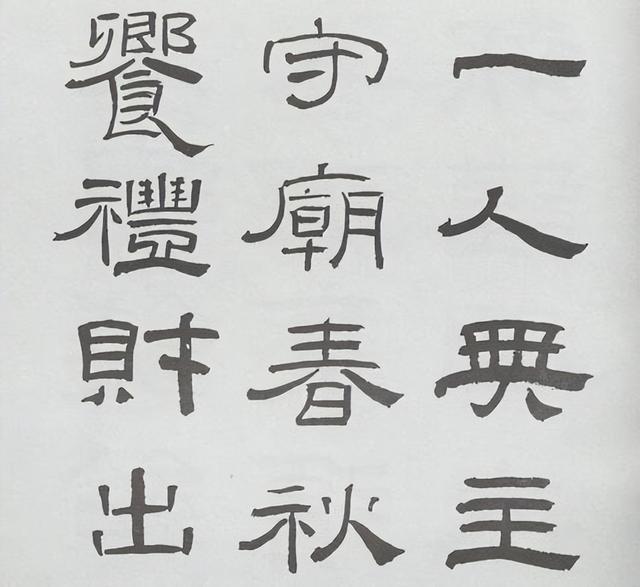 一人典主
守廟春秋
饗禮財出